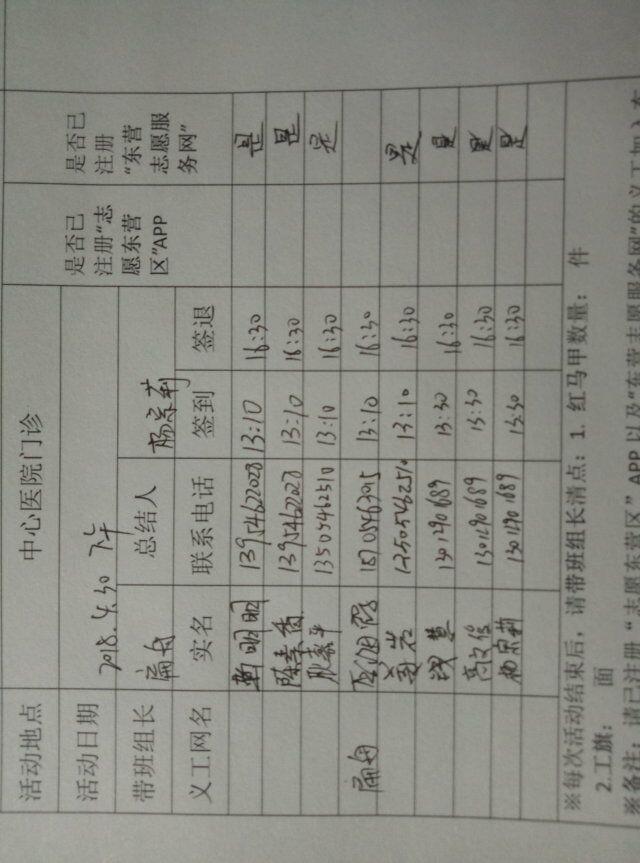 活动地点 中心医院门诊
活动日期 2018.4.30 下午
带班组长 扁舟 总结人 杨宗莉
义工网名 实名 联系电话 签到 签退 是否已注册“志愿东营区”APP 是否已注册“东营志愿服务网”
靳明明 13954622028 13:10 16:30 是
陈素香 13954622028 13:10 16:30 是
13505462510 13:10 16:30 是
扁舟 13:10 16:30
13505462510 13:10 16:30 是
13012901689 13:30 16:30 是
高文俊 13012901689 13:30 16:30 是
杨宗莉 13012901689 13:30 16:30 是
※每次活动结束后，请带班组长清点：1. 红马甲数量： 件
2.工旗： 面
※备注：请已注册“志愿东营区”APP 以及“东营志愿服务网”的义工加入东